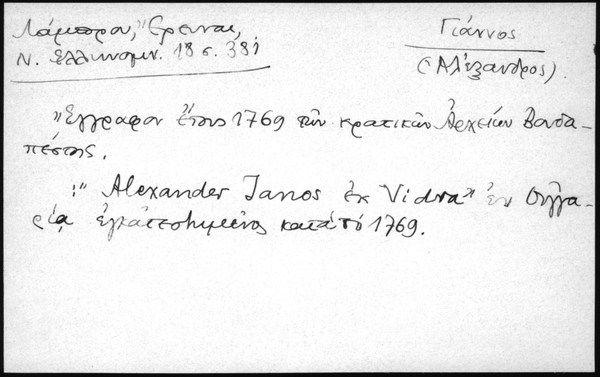 Λάμπρου, "Έρευναι,
Ν. Ελληνομν. 18 σ. 381
Γιάννος
(Αλέξανδρος).
"Έγγραφον έτους 1769 των κρατικών Αρχείων Βουδα-
πέστης.
:" Alexander Ianos εκ Vidra" εν Ουγγα-
ρία εγκατεστημένος κατά το 1769.